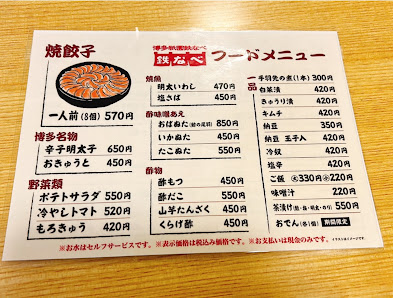 焼餃子
一人前(8個) 570円
博多名物
辛子明太子 650円
おきゅうと 450円
野菜類
ポテトサラダ 550円
冷やしトマト 520円
もろきゅう 420円
博多祇園鉄なべ
鉄なべ フードメニュー
焼魚
明太いわし 470円
塩さば 450円
酢味噌あえ
おばぬた 850円
いかぬた 450円
たこぬた 550円
酢物
酢もつ 450円
酢だこ 550円
山芋たんざく 450円
くらげ酢 450円
一品
手羽先の煮(1本) 300円
白菜漬 420円
きゅうり漬 420円
キムチ 420円
納豆 350円
納豆 玉子入 420円
冷奴 420円
塩辛 420円
ご飯 大330円 小220円
味噌汁 220円
茶漬け(鮭・梅・明太・のり) 550円
おでん(各1個) 期間限定
※お水はセルフサービスです。※表示価格は税込み価格です。※お支払いは現金のみです。